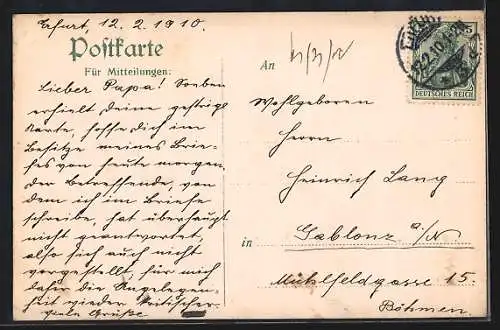 Erfurt, 12.2.1910.
Postkarte
Für Mitteilungen:
Lieber Papa! Soeben
erhielt deine gestrige
Karte, hoffe dich im
Besitze meines Brie-
fes von heute morgen,
der Betreffende, von
dem ich im Briefe
schreibe, hat überhaupt
nicht geantwortet,
also sich auch nicht
vorgestellt, für mich
dahin die Angelegen-
heit wieder
viele Grüße
An
Wohlgeboren
Herrn
Heinrich Lang
in Gablonz a/N
Mühlfeldgasse 15.
Böhmen
5
DEUTSCHES REICH